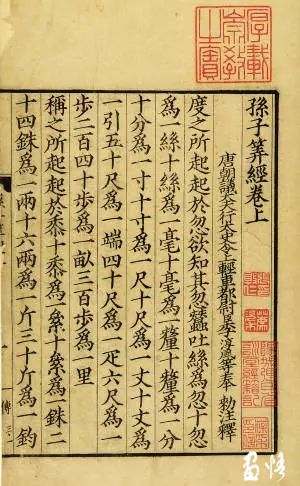 孫子筭經卷上
唐朝議大夫行太史令上輕車都尉臣李淳風等奉 勑注釋
度之所起起於忽欲知其忽蠶吐絲爲忽十忽
爲一絲十絲爲一毫十毫爲一釐十釐爲一分
十分爲一寸十寸爲一尺十尺爲一丈十丈爲
一引五十尺爲一端四十尺爲一疋六尺爲一
歩二百四十歩爲一畝三百歩爲一里
稱之所起起於黍十黍爲一絫十絫爲一銖二
十四銖爲一兩十六兩爲一斤三十斤爲一鈞